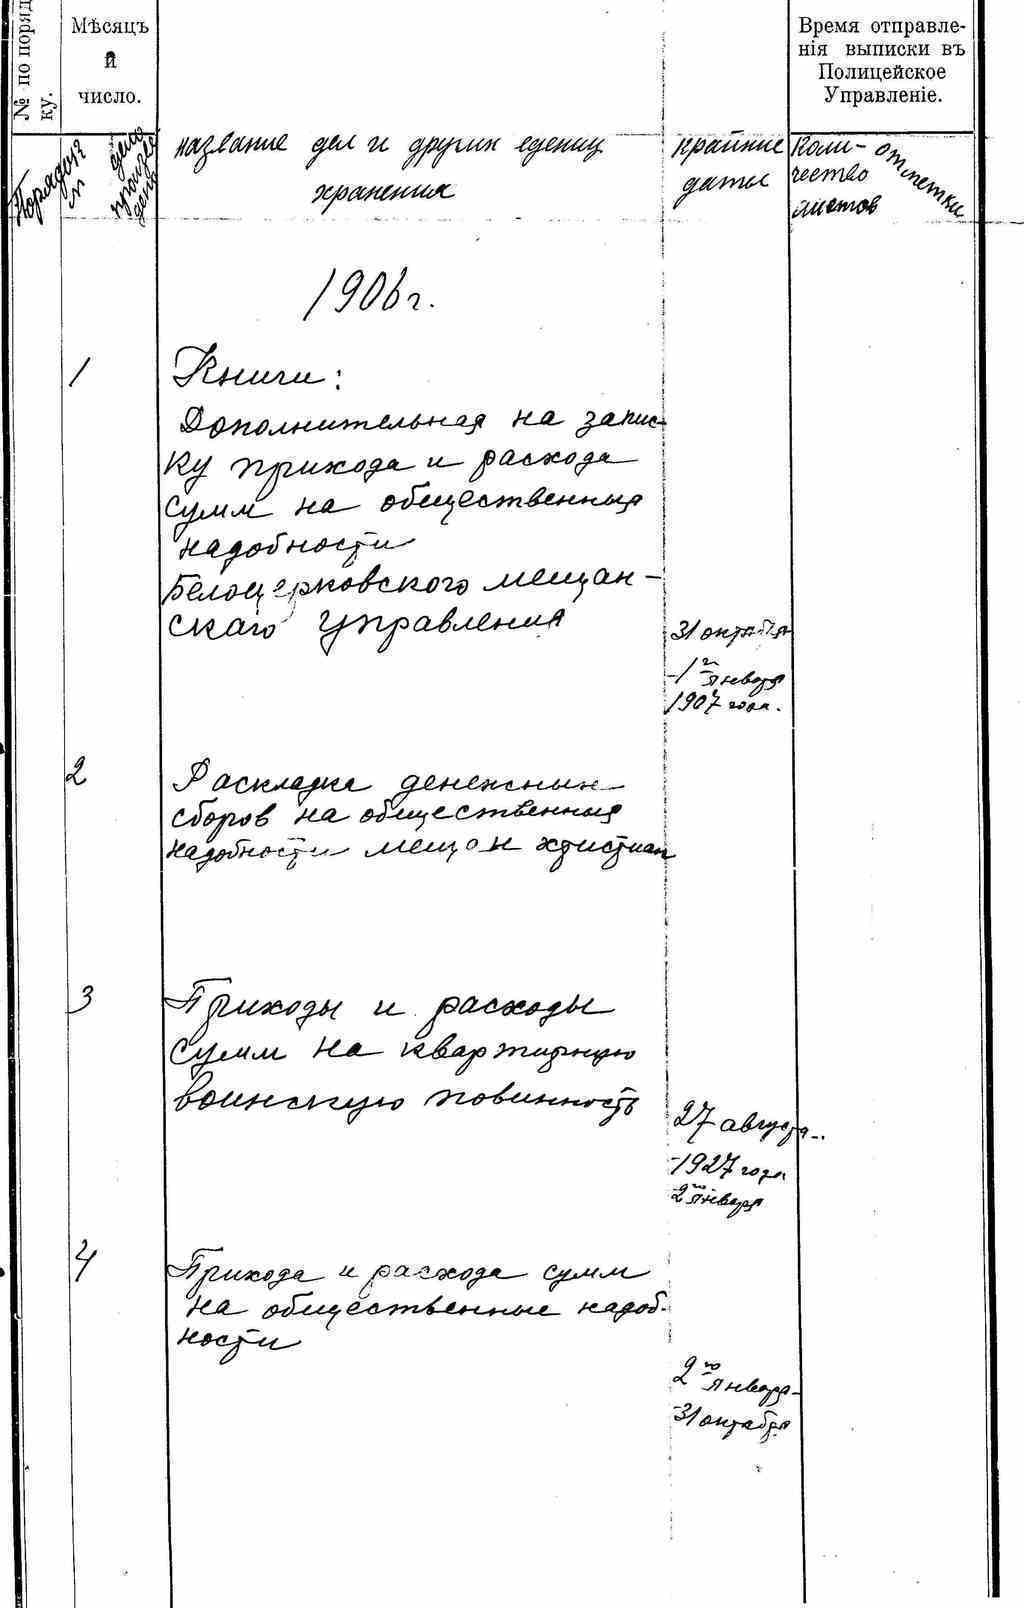 № по поряд
ку.
Мѣсяцъ
и
число.
Время отправле-
нія выписки въ
Полицейское
Управленіе.
дело
произв
ден
название дел и других едениц
хранения
крайние
даты
Коли-
чество
листов
отметки
1906 г.
1
Книги:
Дополнительная на запис-
ку прихода и расхода
сумм на общественныя
надобности
Белоцерковского мещан-
скаго управления
31 октября
-1го января
1907 года.
2
Раскладка денежных
сборов на общественныя
надобности мещан христиан
3
Приходы и расходы
сумм на квартирную
воинскую повинность
27 августа-
-1927 года
2го января
4
Прихода и расхода сумм
на общественные надоб-
ности
2го января-
-31 октября